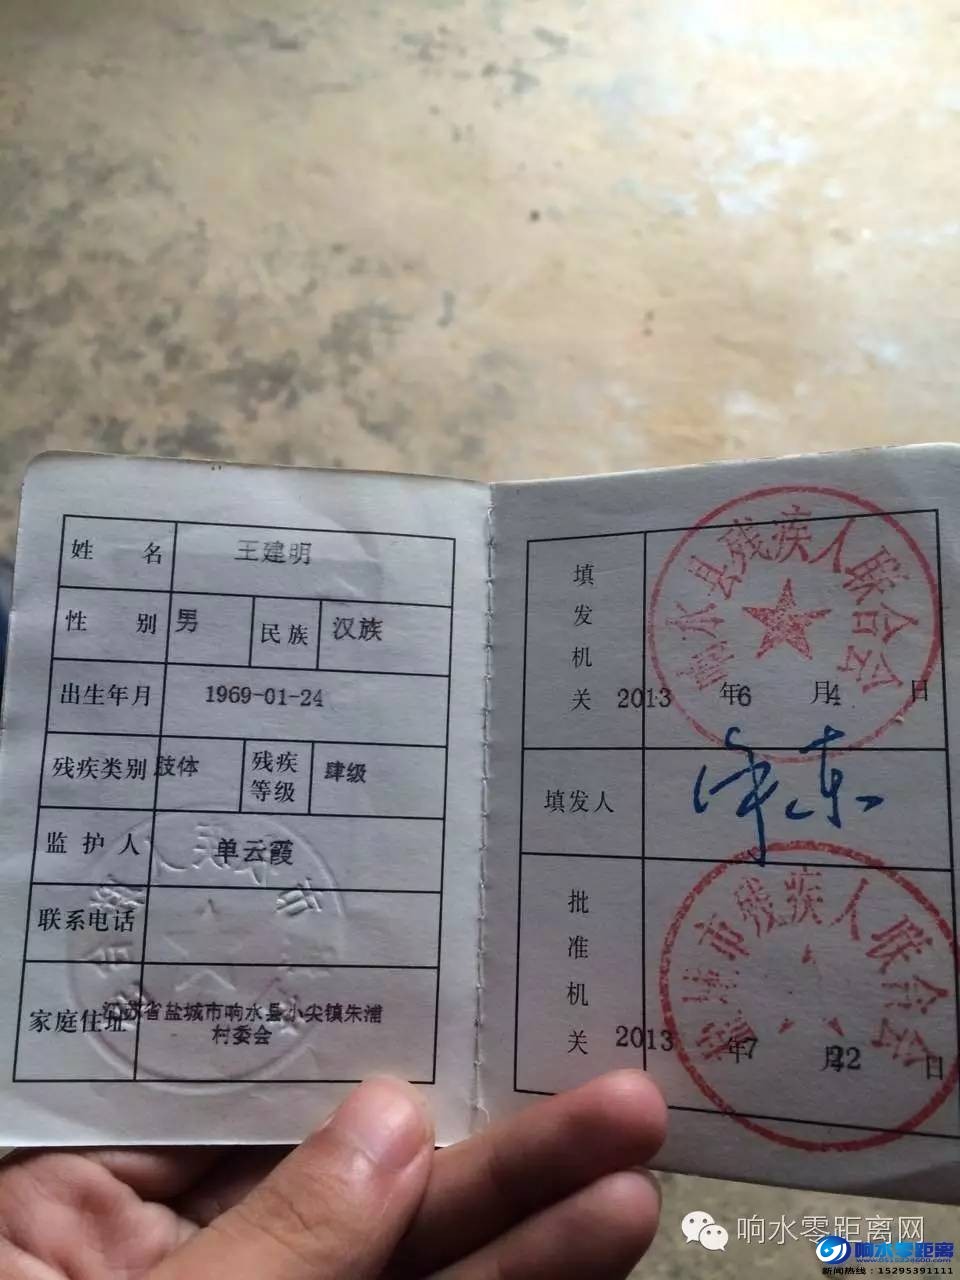 姓 名 王建明
性 别 男 民族 汉族
出生年月 1969-01-24
残疾类别 肢体 残疾等级 肆级
监护人 单云霞
联系电话
家庭住址 江苏省盐城市响水县小尖镇朱浦
村委会
响水县残疾人联合会
填发机关 2013年6月4日
填发人
盐城市残疾人联合会
批准机关 2013年7月22日
响水零距离网
响水零距离
新闻热线：15295391111